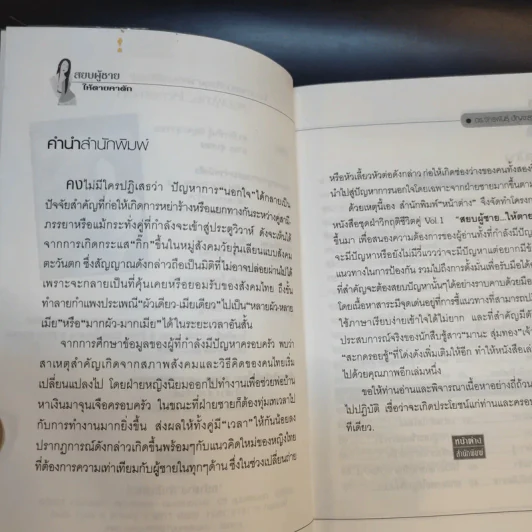 สยบผู้ชาย
ให้ตายคาตัก
คำนำสำนักพิมพ์
คงไม่มีใครปฏิเสธว่า ปัญหาการ“นอกใจ”ได้กลายเป็น
ปัจจัยสำคัญที่ก่อให้เกิดการหย่าร้างหรือแยกทางกันระหว่างคู่สามี-
ภรรยาหรือแม้กระทั่งคู่ที่กำลังจะเข้าสู่ประตูวิวาห์ ดังจะเห็นได้
จากการเกิดกระแส“กิ๊ก”ขึ้นในหมู่สังคมวัยรุ่นเลียนแบบสังคม
ตะวันตก ซึ่งสัญญาณดังกล่าวถือเป็นมิติที่ไม่อาจปล่อยผ่านไปได้
เพราะจะกลายเป็นที่คุ้นเคยหรือยอมรับของสังคมไทย ถึงขั้น
ทำลายกำแพงประเพณี“ผัวเดียว-เมียเดียว”ไปเป็น“หลายผัว-หลาย
เมีย”หรือ“มากผัว-มากเมีย”ได้ในระยะเวลาอันสั้น
จากการศึกษาข้อมูลของผู้ที่กำลังมีปัญหาครอบครัว พบว่า
สาเหตุสำคัญเกิดจากสภาพสังคมและวิถีชีวิตของคนไทยเริ่ม
เปลี่ยนแปลงไป โดยฝ่ายหญิงนิยมออกไปทำงานเพื่อช่วยพ่อบ้าน
หาเงินมาจุนเจือครอบครัว ในขณะที่ฝ่ายชายก็ต้องทุ่มเทเวลาไป
กับการทำงานมากยิ่งขึ้น ส่งผลให้ทั้งคู่มี“เวลา”ให้กันน้อยลง
ปรากฏการณ์ดังกล่าวเกิดขึ้นพร้อมๆกับแนวคิดใหม่ของหญิงไทย
ที่ต้องการความเท่าเทียมกับผู้ชายในทุกๆด้าน ซึ่งในช่วงเปลี่ยนถ่าย
หรือหัวเลี้ยวหัวต่อดังกล่าว ก่อให้เกิดช่องว่างของคนทั้งสอง
นำไปสู่ปัญหาการนอกใจโดยเฉพาะจากฝ่ายชายมากขึ้นตาม
ด้วยเหตุนี้เอง สำนักพิมพ์“หน้าต่าง” จึงจัดทำโครง
หนังสือชุดฝ่าวิกฤติชีวิตคู่ Vol.1 “สยบผู้ชาย...ให้ตาย
ขึ้นมา เพื่อสนองความต้องการของผู้อ่านทั้งที่กำลังมีปัญหา
จะมีปัญหาหรือยังไม่มีวี่แววว่าจะมีปัญหาแต่อยากมีข้อ
แนวทางในการป้องกัน รวมไปถึงการตั้งมั่นเพื่อรับมือได้
ที่สำคัญจะต้องสยบปัญหานั้นๆได้อย่างราบคาบด้วย
โดยเนื้อหาสาระมีจุดเด่นอยู่ที่การชี้แนวทางที่สามารถ
ใช้ภาษาเรียบง่ายเข้าใจได้ไม่ยาก และที่สำคัญมีตัว
ประสบการณ์จริงของนักสืบชู้สาว“มานะ สุ่มทอง”เจ้า
“สะกดรอยชู้”ที่โด่งดังเพิ่มเติมให้อีก ทำให้หนังสือเล่
ไปด้วยคุณภาพอีกเล่มหนึ่ง
ขอให้ท่านอ่านและพิจารณาเนื้อหาอย่างถี่ถ้วน
ไปปฏิบัติ เชื่อว่าจะเกิดประโยชน์แก่ท่านและครอบ
ทีเดียว.
หน้าต่าง
สำนักพิมพ์